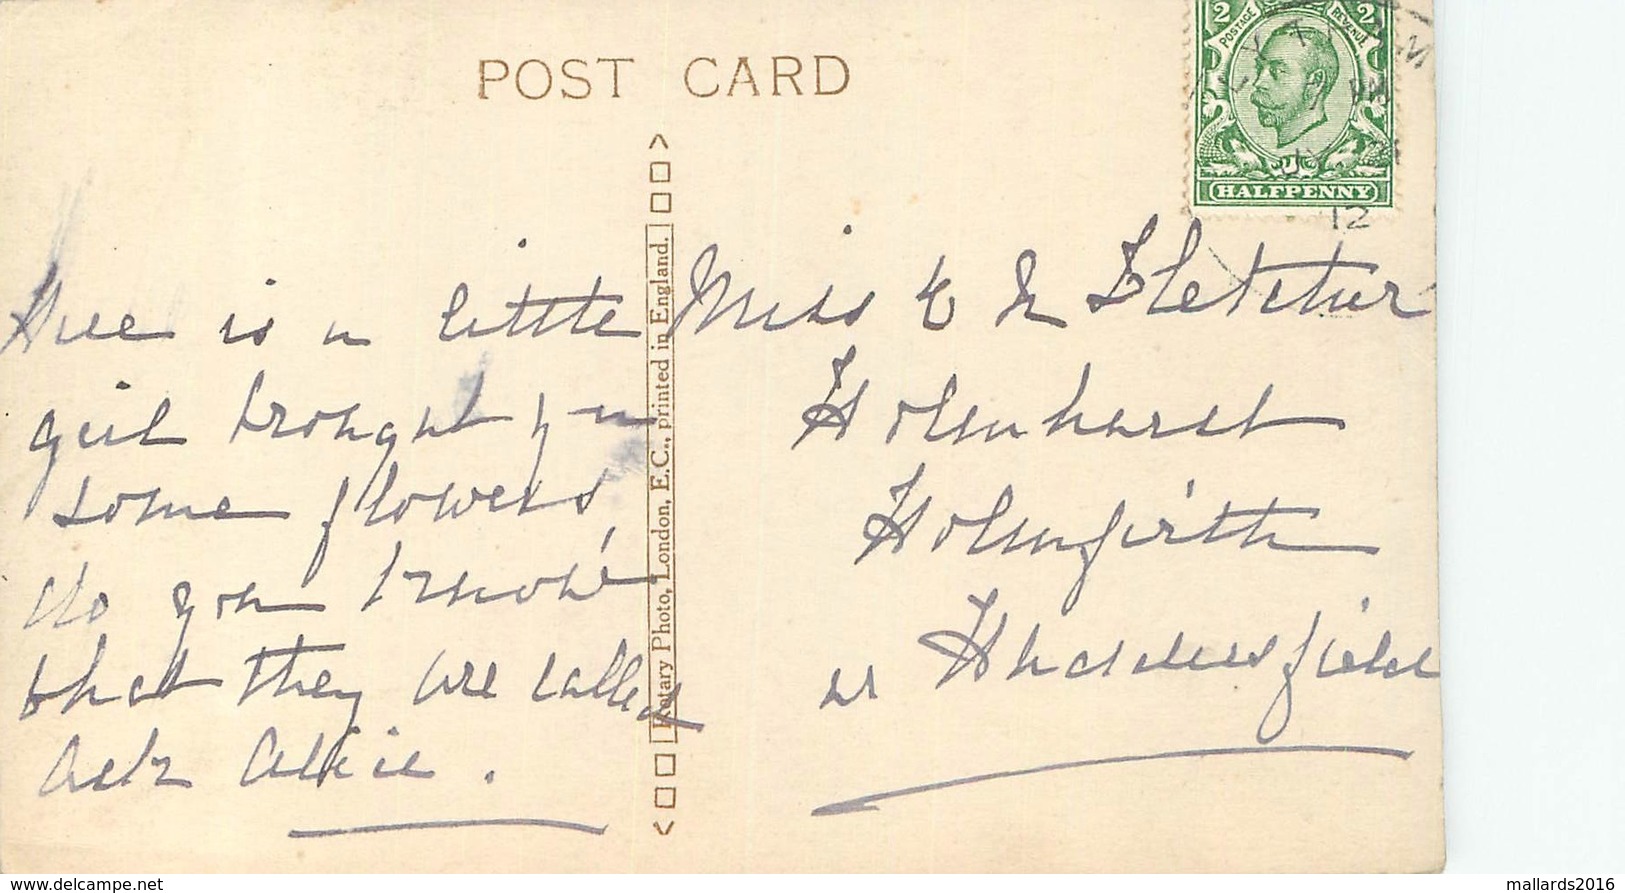 POST CARD
2 POSTAGE REVENUE 2
HALFPENNY
12
Here is a little
girl brought you
some flowers,
do you know
what they are called
ask Alice.
Rotary Photo, London, E.C., printed in England.
Miss E M Fletcher
Holmhurst
Holmfirth
Nr Huddersfield
www.delcampe.net
mallards2016